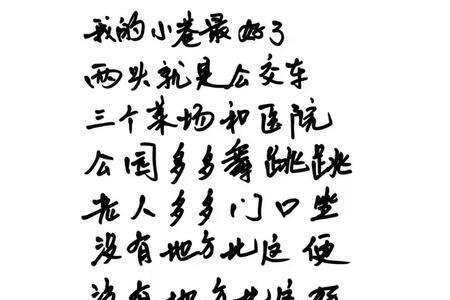 我的小巷最好了
两头就是公交车
三个菜场和医院
公园多多舞跳跳
老人多多门口坐
没有地方比这便
没有地方比这